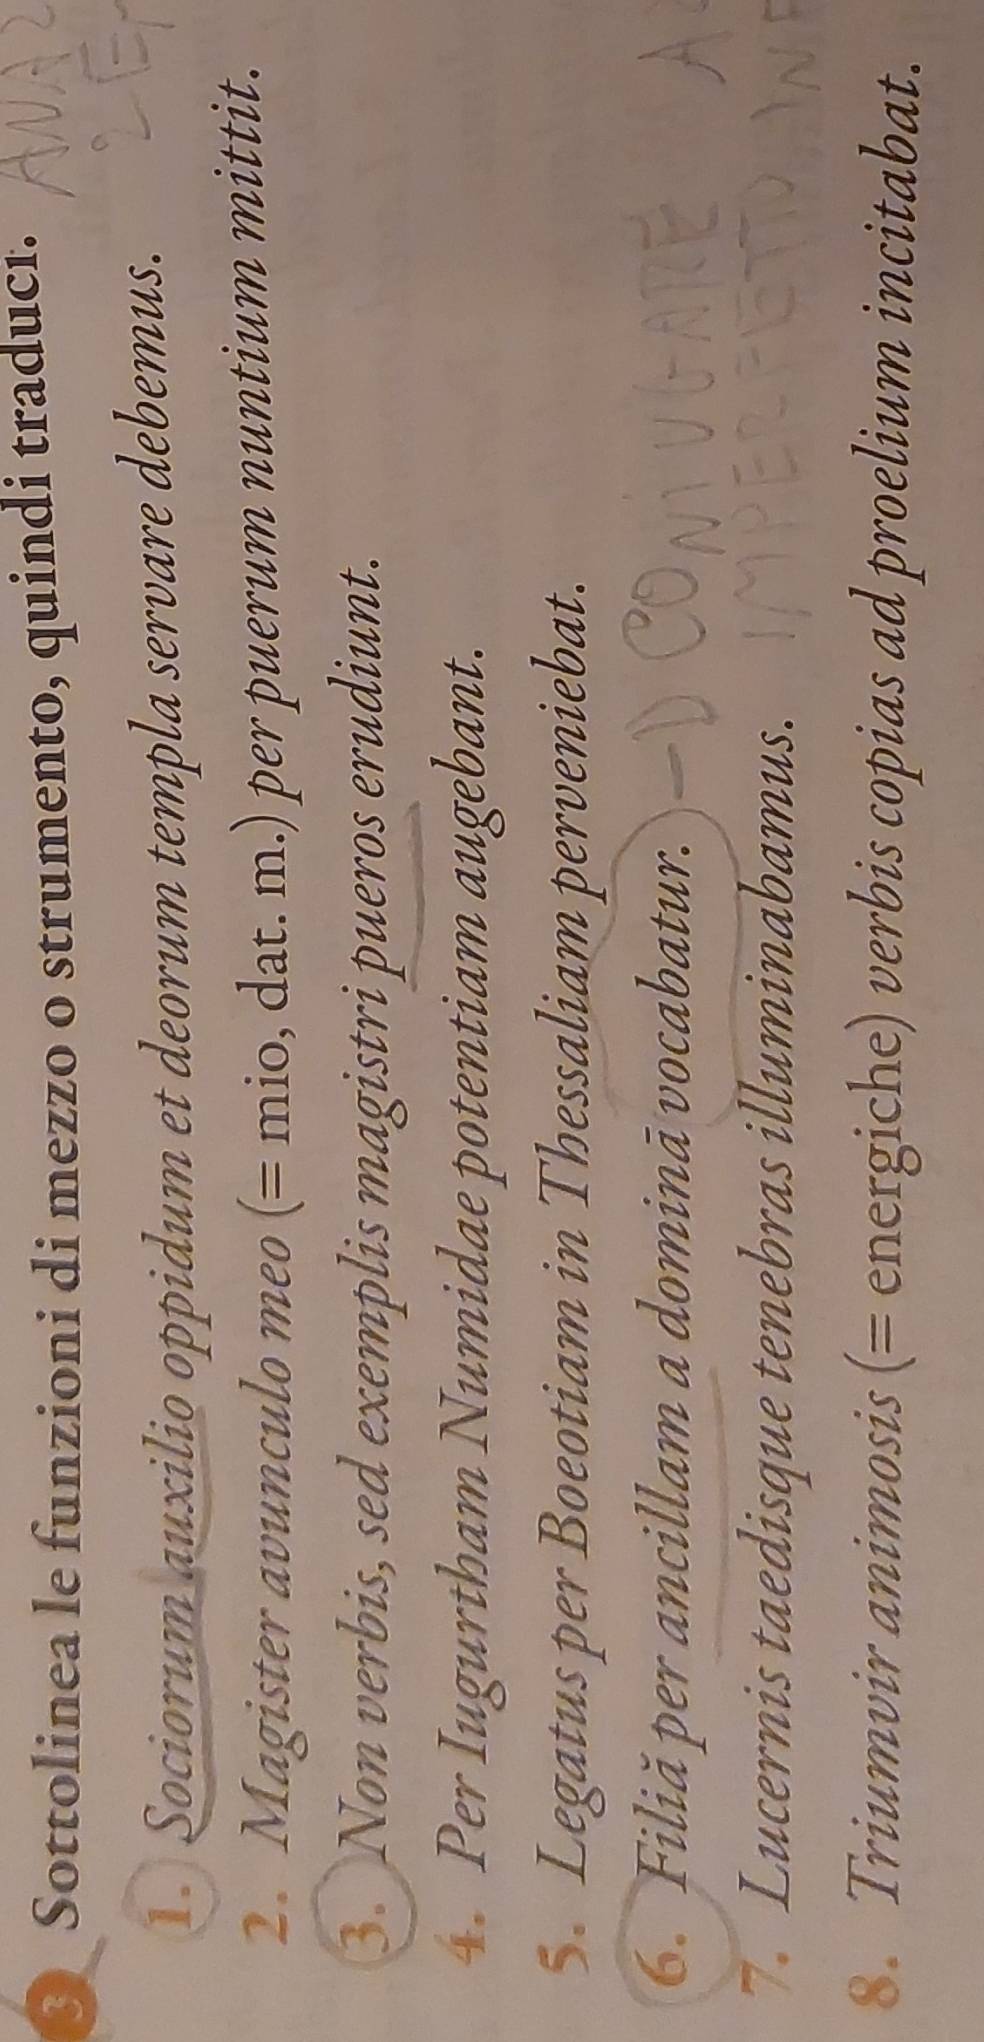 3 Sottolinea le funzioni di mezzo o strumento, quindi traduci.
1. Sociorum auxilio oppidum et deorum templa servare debemus.
2. Magister avunculo meo (= mio, dat. m.) per puerum nuntium mittit.
3. Non verbis, sed exemplis magistri pueros erudiunt.
4. Per Iugurtham Numidae potentiam augebant.
5. Legatus per Boeotiam in Thessaliam perveniebat.
6. Filiă per ancillam a dominā vocabatur. CONIUGARE
IMPERFETTO
7. Lucernis taedisque tenebras illuminabamus.
8. Triumvir animosis (= energiche) verbis copias ad proelium incitabat.